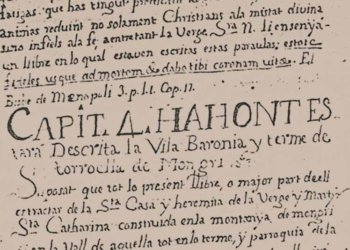 fatigas. que has tingut predicant la
animas reduint no solament Christians ala mitat divina
sino infiels ala fè, aentretant la Verge Sra N. li ensenya
un llibre en lo qual estauen escritas estas paraulas; esto
fidelis usque ad mortem & dabo tibi coronam vitæ. El
de Menopoli 3. p. l. 1. Cap. 17.
CAPIT. 4. HAHONT ES
tará Descrita la Vila Baronia y terme de
torroella de Mongri
Suposat que tot lo present llibre, o major part dell
es tractar de la Sta Casa y heremita de la Verge y Martyr
Sta Catharina construida en la montanya de mongri
la Vall de aquella tot en lo terme, y parroquia de la